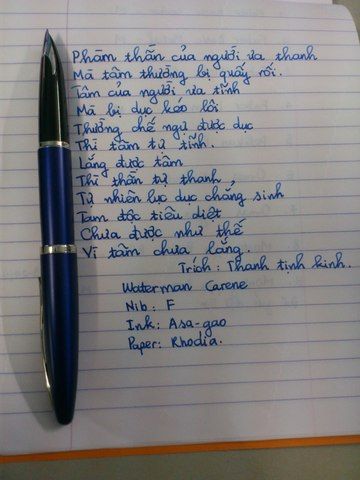 Phàm thần của người ưa thanh
Mà tâm thường bị quấy rối.
Tâm của người ưa tĩnh
Mà bị dục kéo lôi
Thường chế ngự được dục
Thì tâm tự tĩnh.
Lắng được tâm
Thì thần tự thanh,
Tự nhiên lục dục chẳng sinh
Tam độc tiêu diệt
Chưa được như thế
Vì tâm chưa lắng.
Trích: Thanh tịnh kinh.
Waterman Carene
Nib: F
Ink: Asa-gao
Paper: Rhodia.